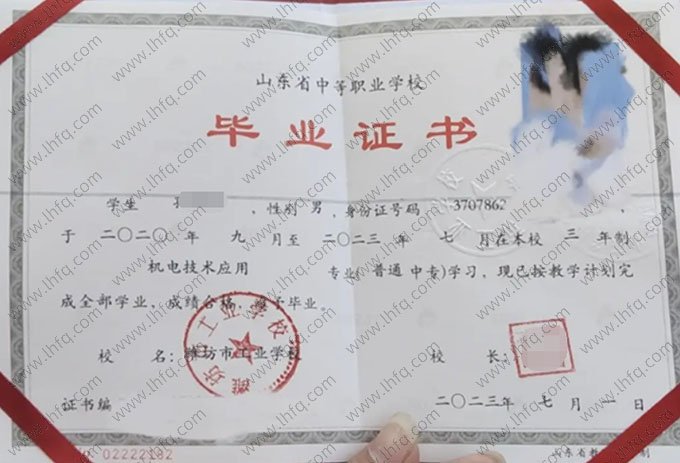 山东省中等职业学校
毕业证书
学生 ，性别 男，身份证号码 3707862 ，
于 二〇二〇 年 九 月至 二〇二三 年 七 月在本校 三 年制
机电技术应用 专业(普通中专)学习，现已按教学计划完
成全部学业，成绩合格，准予毕业。
校 名：潍坊市工业学校 校 长：
潍坊市工业学校
证书编 二〇二三年 七 月 一 日
02222182 山东省教 制
www.lhfq.com